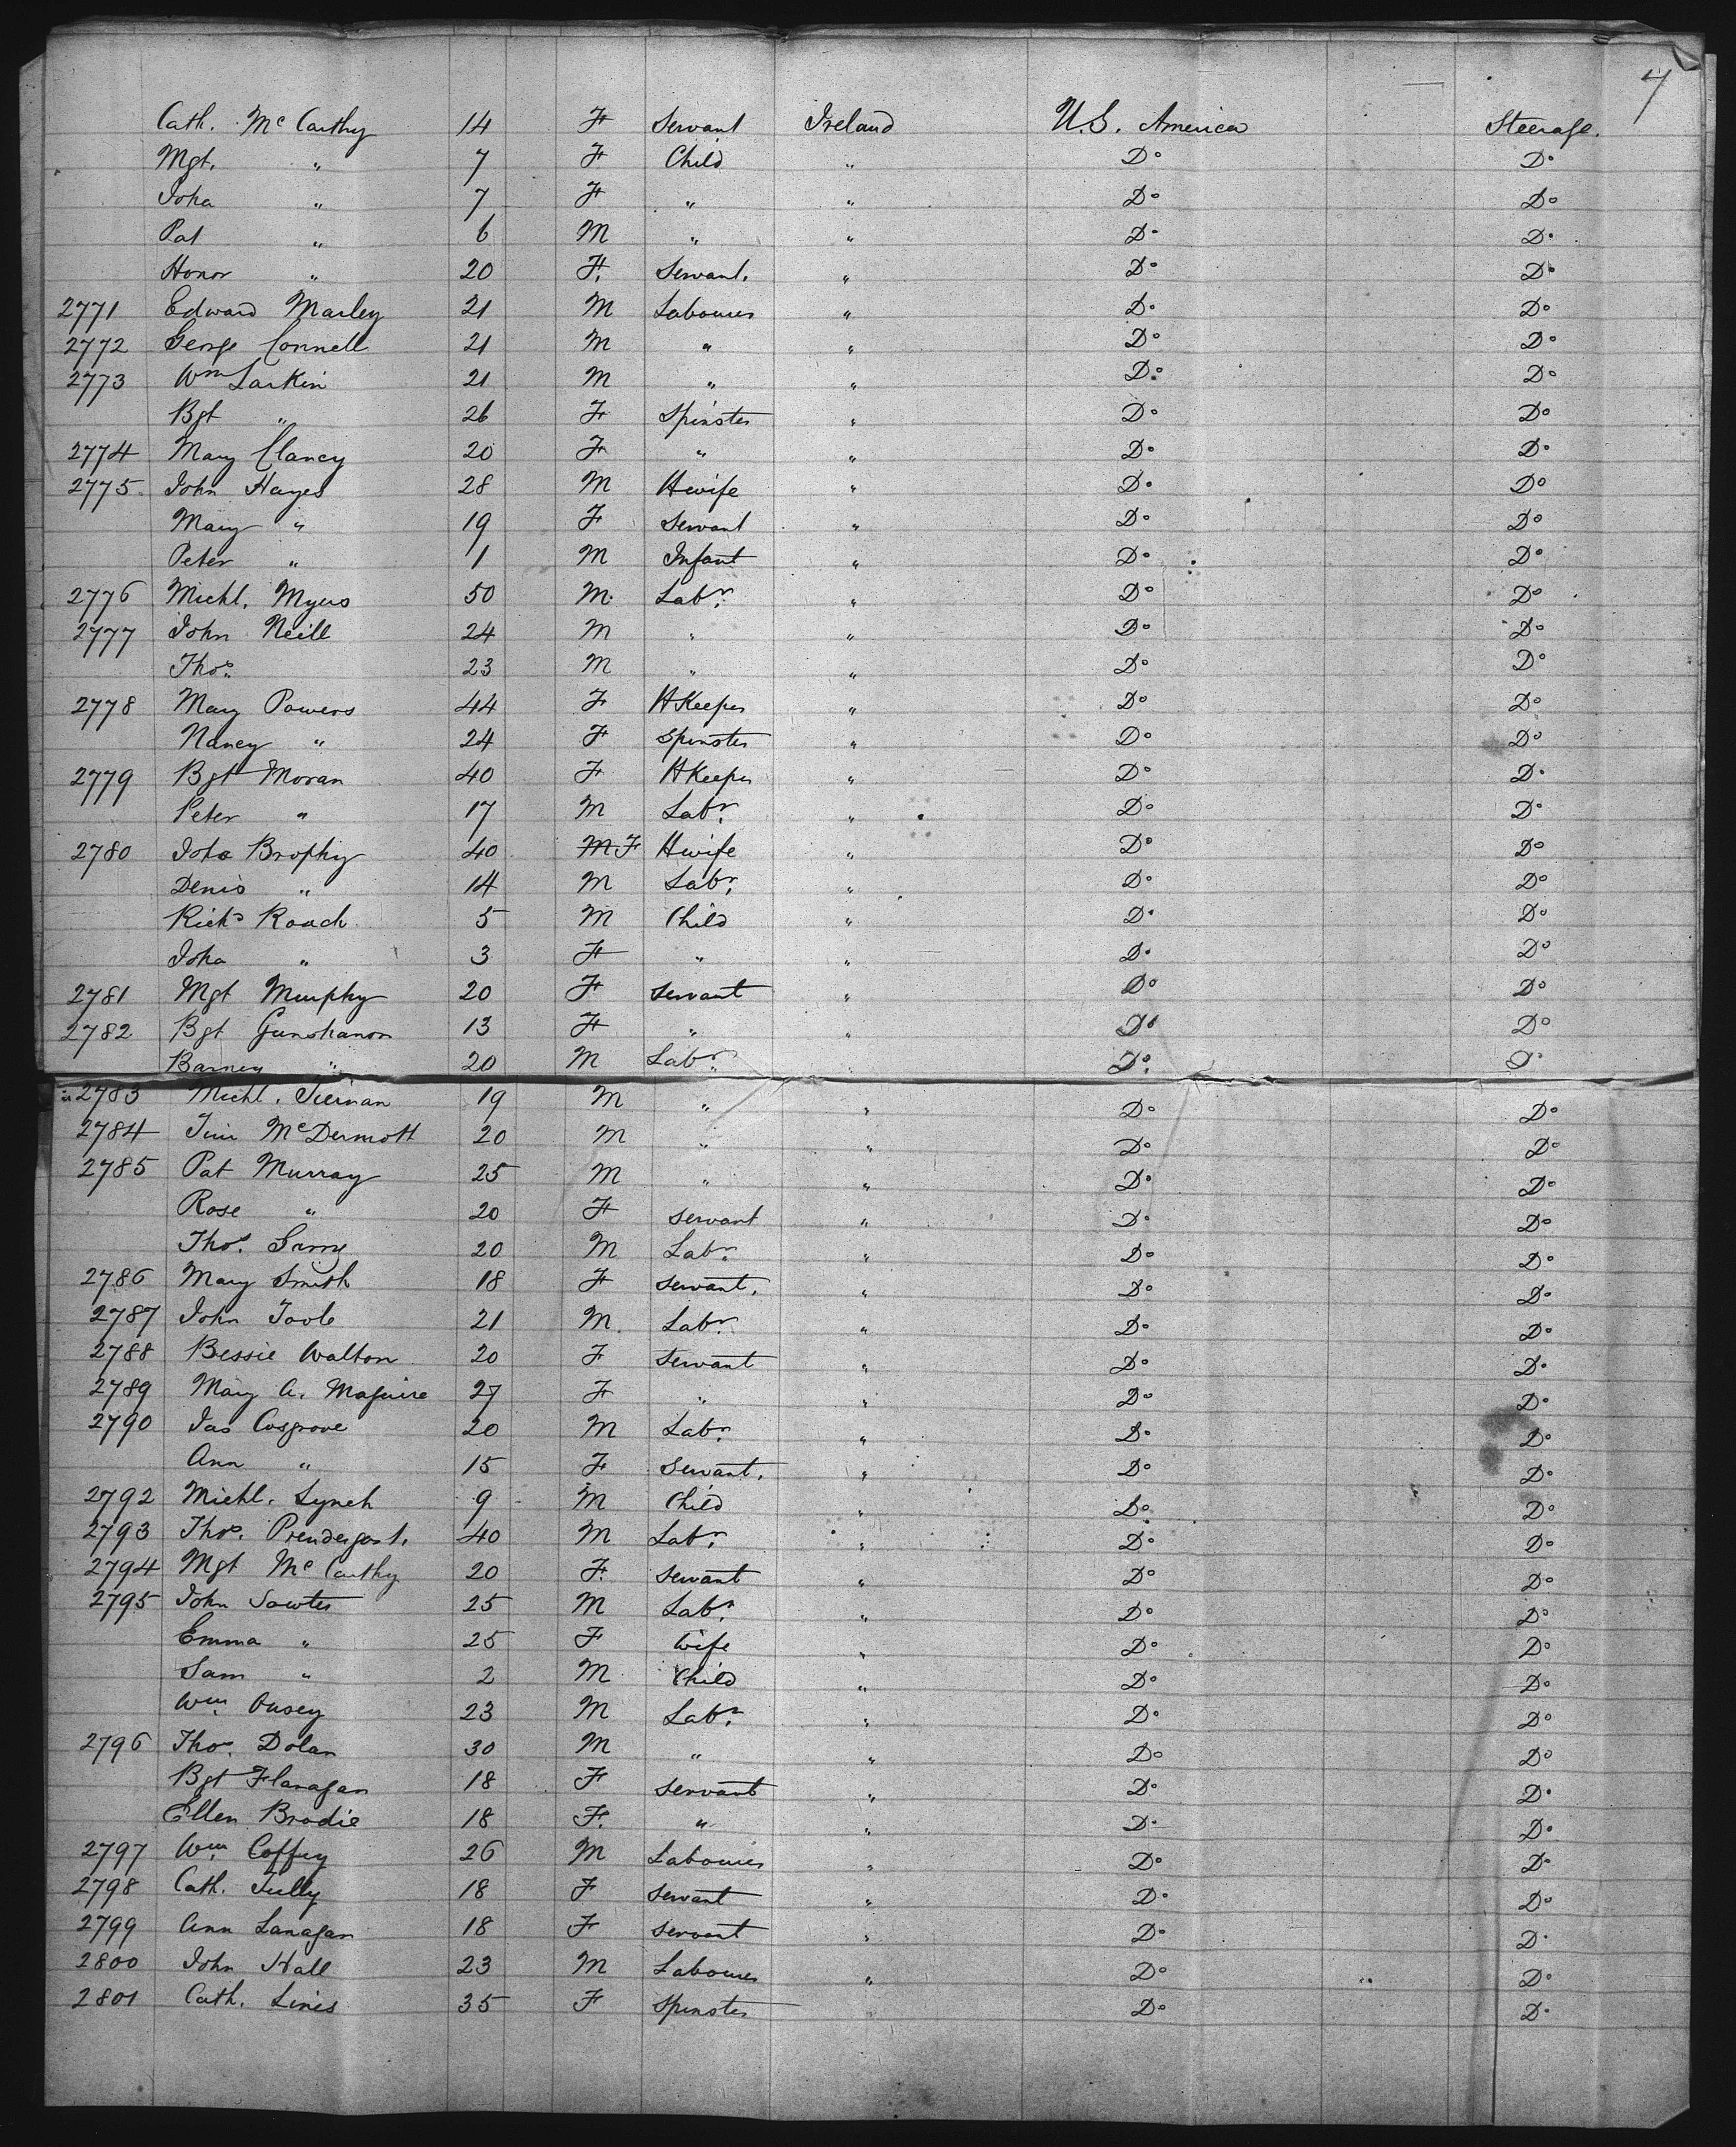 7
Cath. McCarthy 14 F Servant Ireland U.S. America Steerage.
Mgt. " 7 F Child " Do Do
Joha " 7 F " " Do Do
Pat " 6 M " " Do Do
Honor " 20 F. Servant. " Do Do
2771 Edward Marley 21 M Labourer " Do Do
2772 George Connell 21 M " " Do Do
2773 Wm Larkin 21 M " " Do Do
Bgt " 26 F Spinster " Do Do
2774 Mary Clancy 20 F " " Do Do
2775 John Hayes 28 M Hwife " Do Do
Mary " 19 F Servant " Do Do
Peter " 1 M Infant " Do Do
2776 Michl. Myers 50 M Labr. " Do Do
2777 John Neill 24 M " " Do Do
Thos. 23 M " " Do Do
2778 Mary Powers 44 F HKeeper " Do Do
Nancy " 24 F Spinster " Do Do
2779 Bgt Moran 40 F HKeeper " Do Do
Peter " 17 M Labr. " Do Do
2780 Joha Brophy 40 M F Hwife " Do Do
Denis " 14 M Labr. " Do Do
Richd Roach 5 M Child " Do Do
Joha " 3 F " " Do Do
2781 Mgt Murphy 20 F Servant " Do Do
2782 Bgt Gunshanon 13 F " " Do Do
Barney " 20 M Labr. " Do Do
2783 Michl. Tiernan 19 M " " Do Do
2784 Jim McDermott 20 M " " Do Do
2785 Pat Murray 25 M " " Do Do
Rose " 20 F Servant " Do Do
Thos. 20 M Labr. " Do Do
2786 Mary Smith 18 F Servant. " Do Do
2787 John Toole 21 M. Labr. " Do Do
2788 Bessie Walton 20 F Servant " Do Do
2789 Mary A. Maguire 27 F " " Do Do
2790 Jas Cosgrove 20 M Labr. " Do Do
Ann " 15 F Servant. " Do Do
2792 Michl. Lynch 9 M Child " Do Do
2793 Thos. Prendergast. 40 M Labr. " Do Do
2794 Mgt McCarthy 20 F. Servant " Do Do
2795 John Sawter 25 M Labr. " Do Do
Emma " 25 F Wife " Do Do
Sam " 2 M Child " Do Do
Wm. 23 M Labr. " Do Do
2796 Thos. Dolan 30 M " " Do Do
Bgt Flanagan 18 F Servant " Do Do
Ellen Brodie 18 F. " " Do Do
2797 Wm Coffey 26 M Labourer " Do Do
2798 Cath. Tully 18 F Servant " Do Do
2799 Ann Lanagan 18 F Servant " Do Do
2800 John Hall 23 M Labourer " Do Do
2801 Cath. Linis 35 F Spinster Do Do